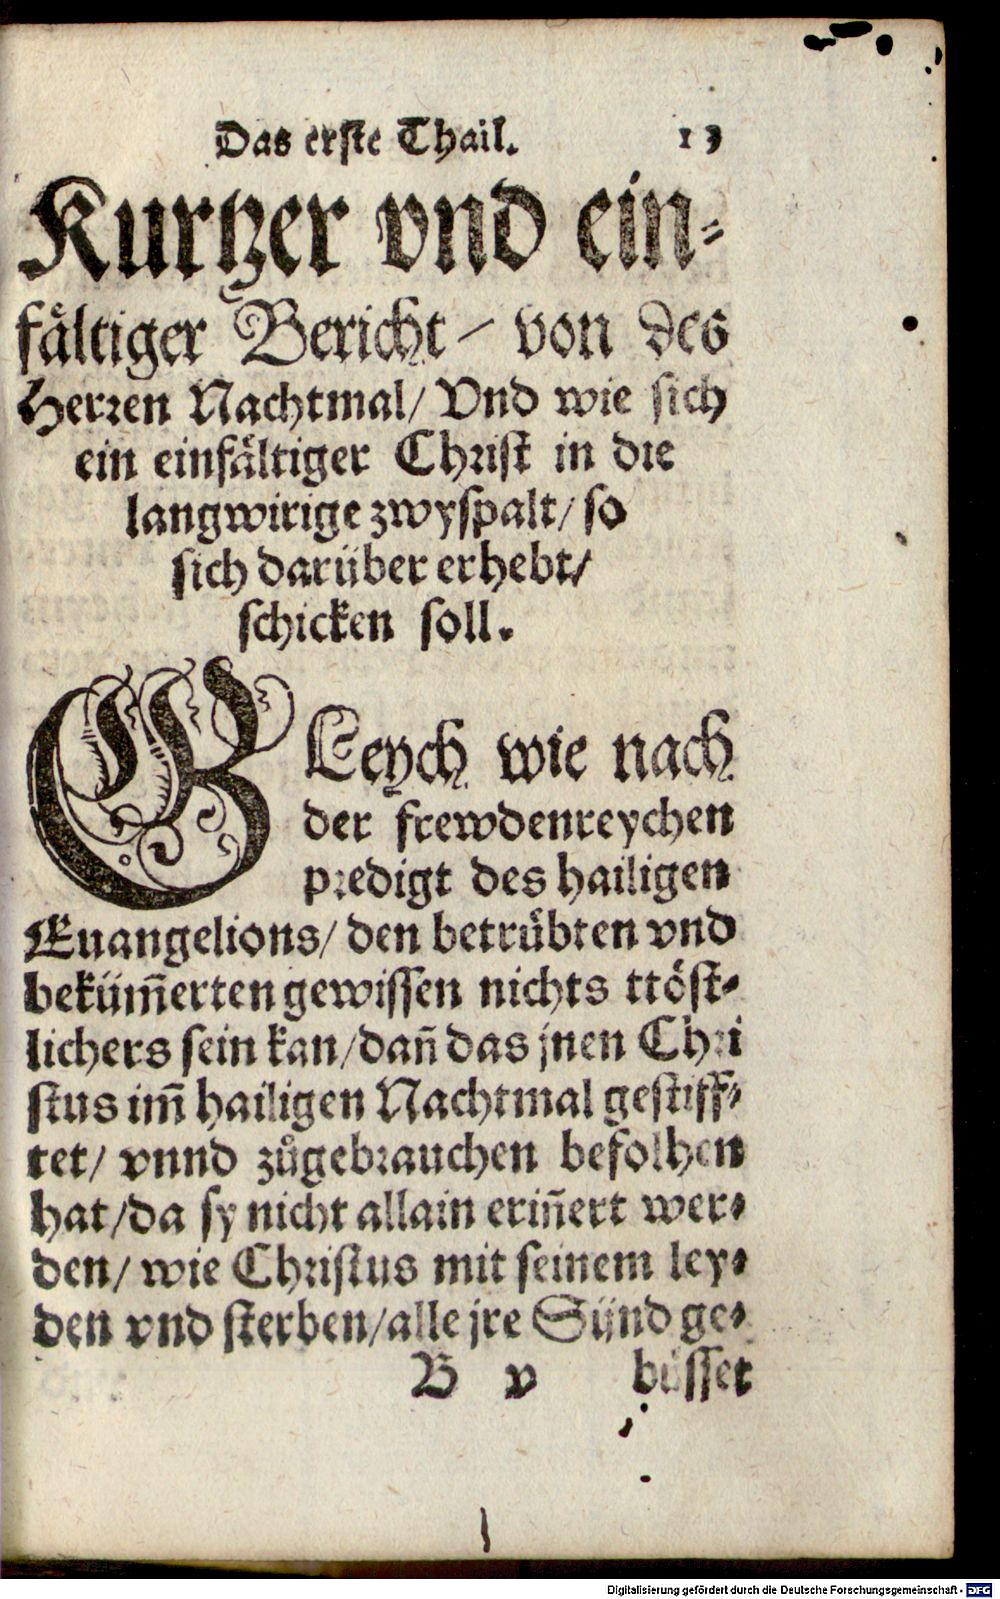 Das erste Thail. 13
Kurtzer vnd ein-
fältiger Bericht / von des
Herren Nachtmal / Vnd wie sich
ein einfältiger Christ in die
langwirige zwyspalt / so
sich darüber erhebt /
schicken soll.
GLeych wie nach
der frewdenreychen
predigt des hailigen
Euangelions / den betrübten vnd
beküm̃erten gewissen nichts ttöst-
lichers sein kan / dañ das jnen Chri
stus im̃ hailigen Nachtmal gestiff-
tet / vnnd zůgebrauchen befolhen
hat / da sy nicht allain eriñert wer-
den / wie Christus mit seinem ley-
den vnd sterben / alle jre Sünd ge-
B v büsset
Digitalisierung gefördert durch die Deutsche Forschungsgemeinschaft - DFG